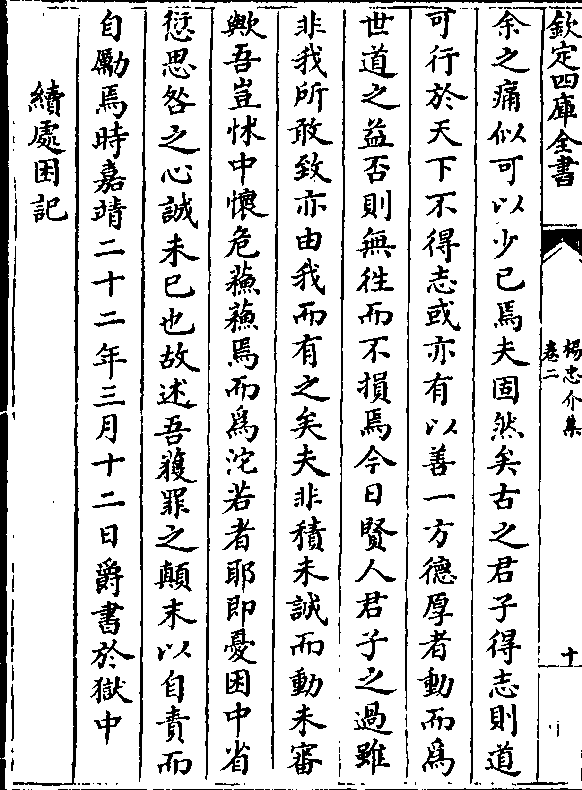 欽定四庫全書
楊忠介集
卷二
十
余之痛似可以少已焉夫固然矣古之君子得志則道
可行於天下不得志或亦有以善一方德厚者動而為
世道之益否則無徃而不損焉今日賢人君子之過雖
非我所敢致亦由我而有之矣夫非積未誠而動未審
歟吾豈怵中懷危蘓蘓焉而為沱若者耶即憂困中省
愆思咎之心誠未已也故述吾獲罪之顛末以自責而
自勵焉時嘉靖二十二年三月十二日爵書於獄中
續處困記